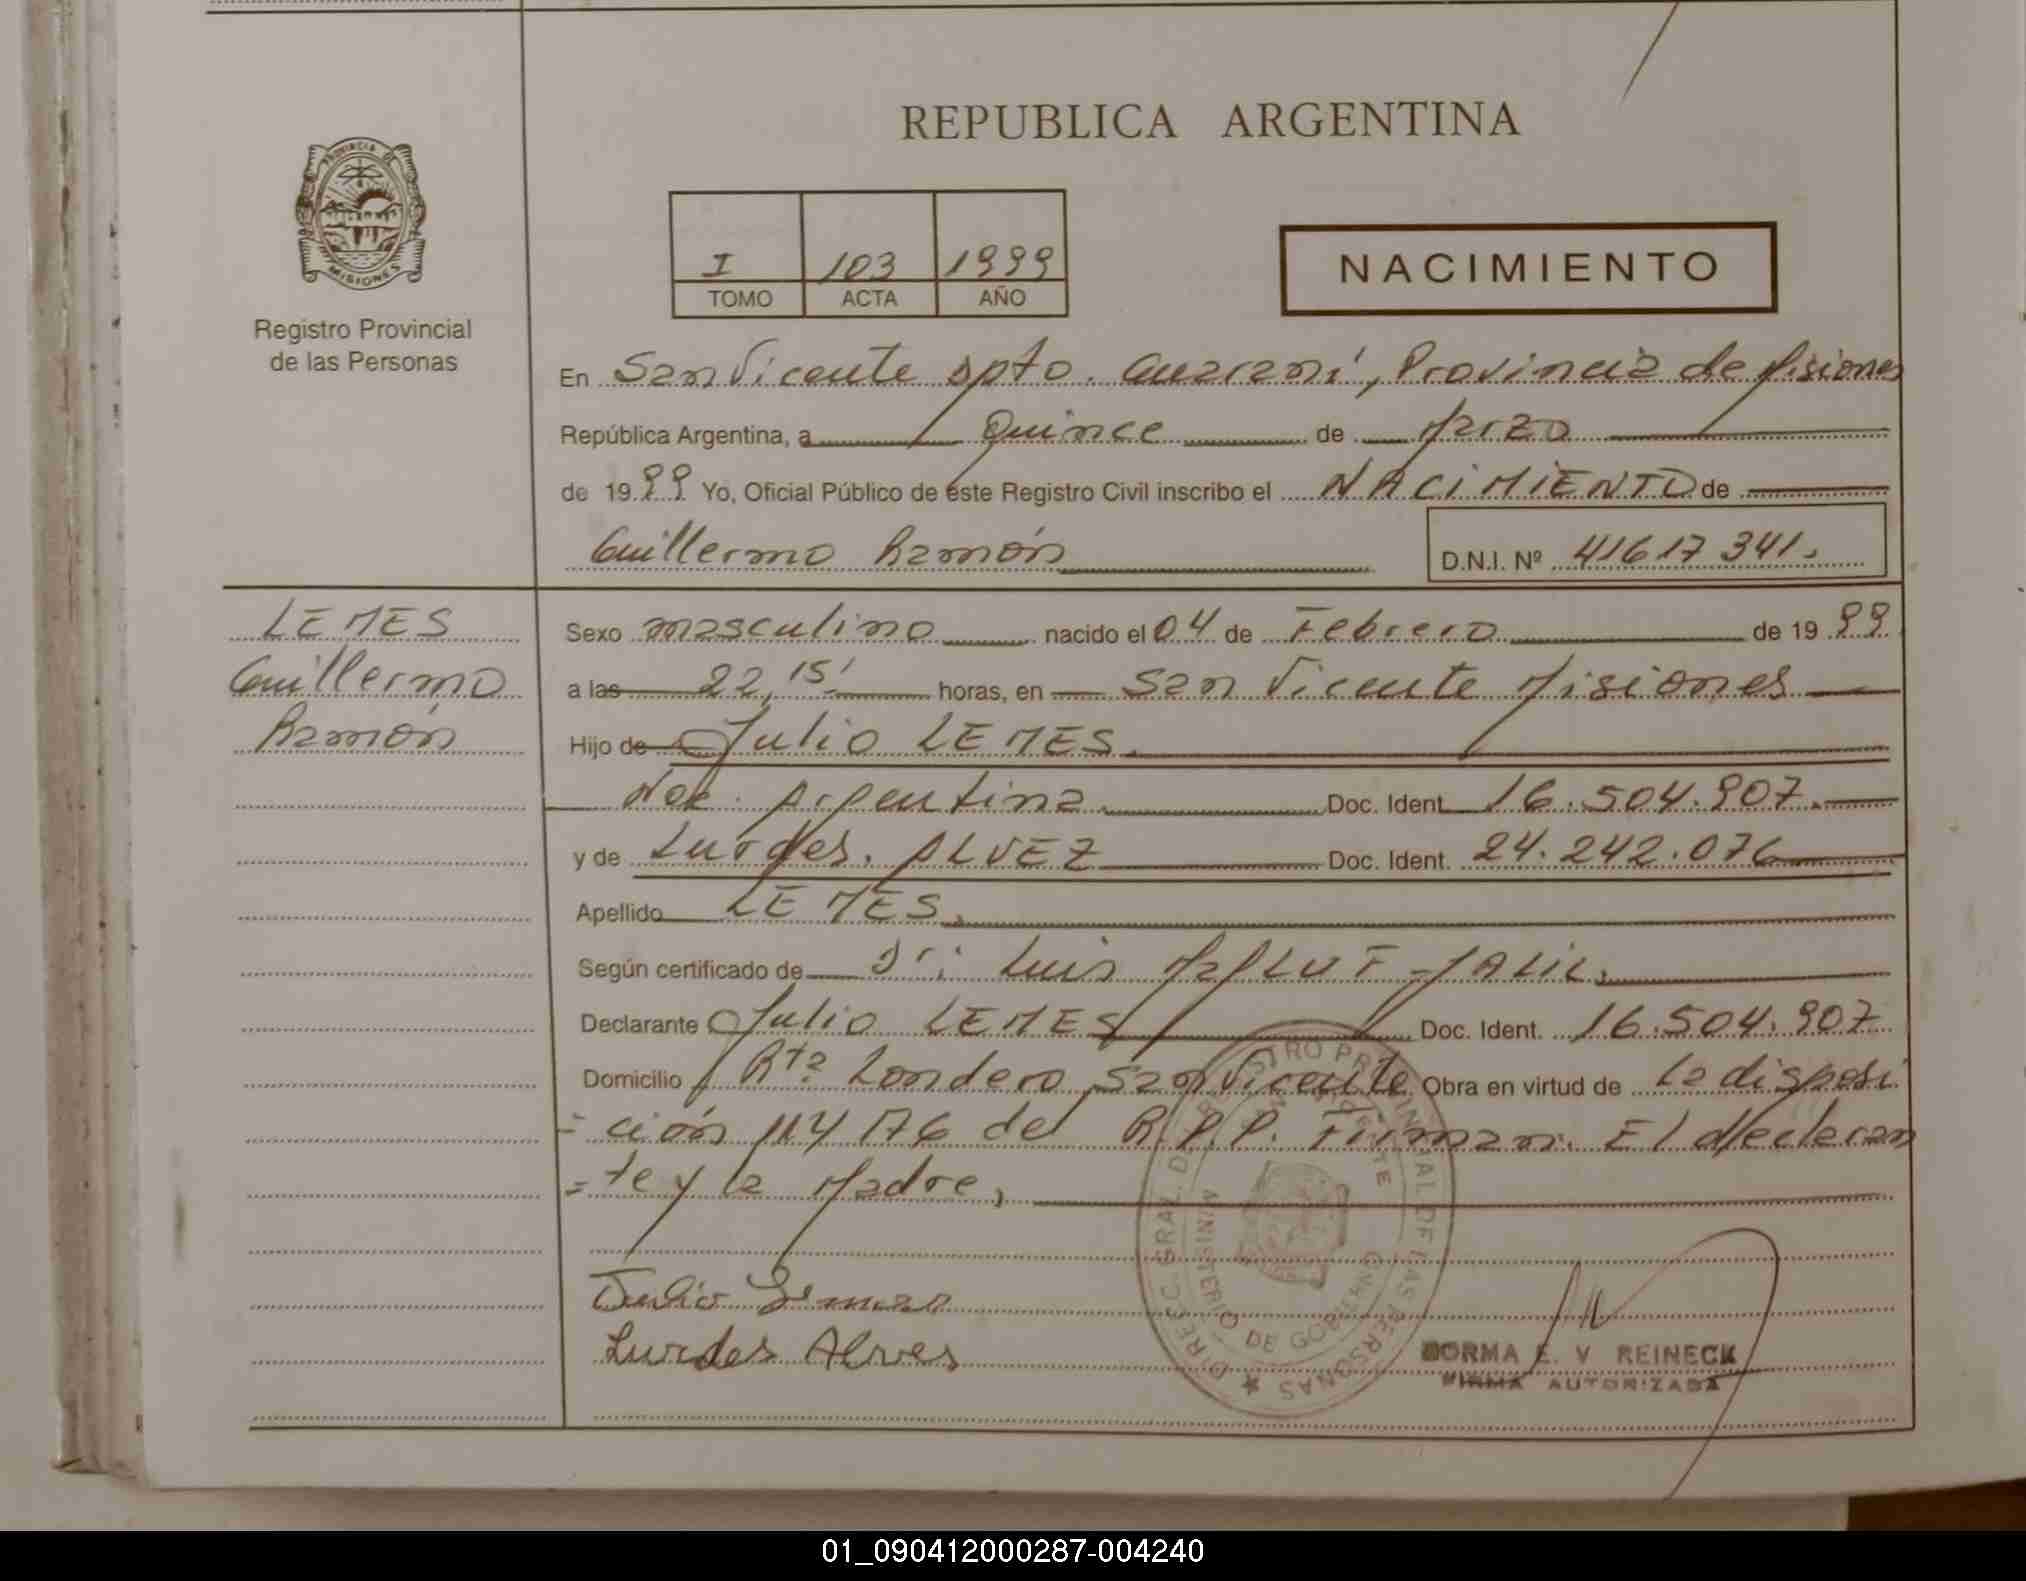 REPUBLICA ARGENTINA
PROVINCIA DE
MISIONES
Registro Provincial
de las Personas
I 103 1999
TOMO ACTA AÑO
NACIMIENTO
En San Vicente Dpto. Guaraní, Provincia de Misiones
República Argentina, a Quince de Marzo
de 1999 Yo, Oficial Público de este Registro Civil inscribo el NACIMIENTO de
Guillermo Ramón D.N.I. Nº 41617341.
LEMES
Guillermo
Ramón
Sexo masculino nacido el 04 de Febrero de 1999
a las 22,15' horas, en San Vicente Misiones
Hijo de Julio LEMES.
Nac. Argentina. Doc. Ident. 16.504.907.
y de Lurdes. ALVEZ Doc. Ident. 24.242.076
Apellido LEMES.
Según certificado de Dr: Luis JALIL.
Declarante Julio LEMES Doc. Ident. 16.504.907
Domicilio Rta Londero San Vicente Obra en virtud de La disposi
=ción 114/76 del R.P.P. Firman: El declaran
=te y la Madre,
Julio
Lurdes Alves
NORMA E. V REINECK
FIRMA AUTORIZADA
DIREC. GRAL. DE REGISTRO PROVINCIAL DE LAS PERSONAS
MINISTERIO DE GOBIERNO
01_090412000287-004240